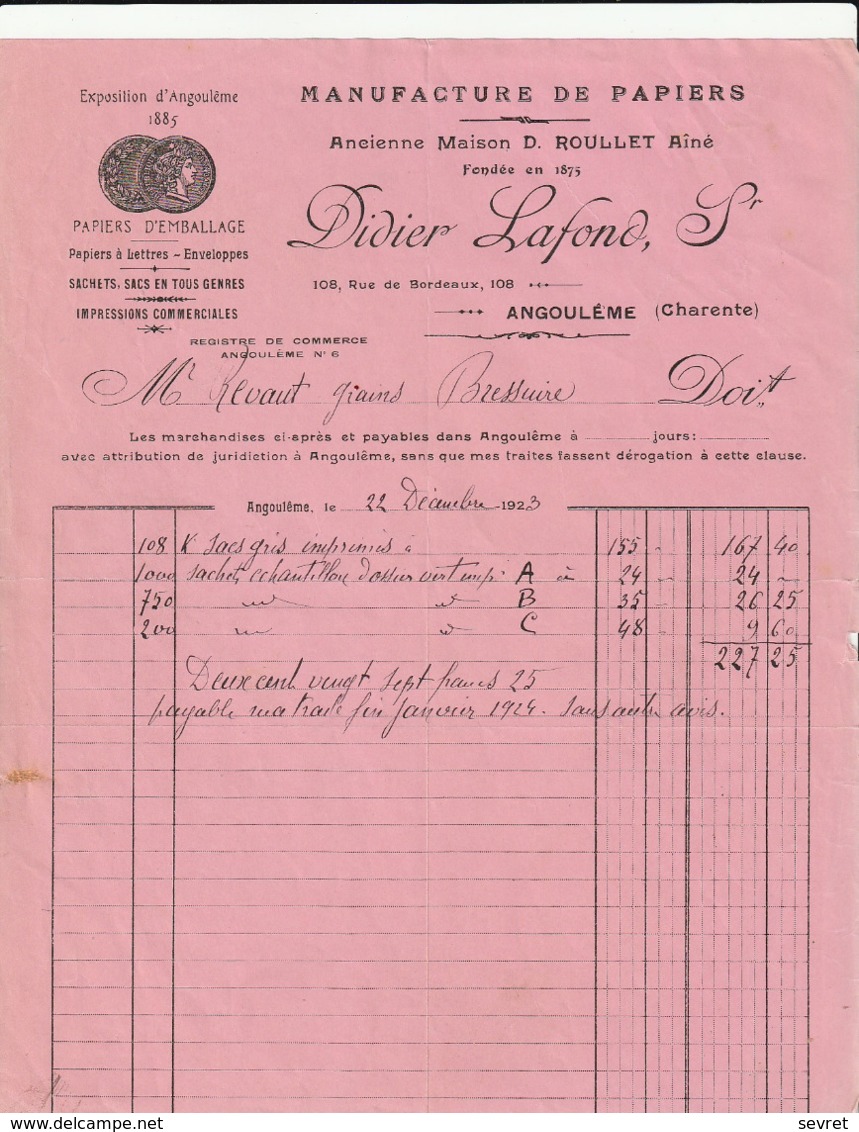 Exposition d'Angoulême
1885
PAPIERS D'EMBALLAGE
Papiers à Lettres - Enveloppes
SACHETS, SACS EN TOUS GENRES
IMPRESSIONS COMMERCIALES
MANUFACTURE DE PAPIERS
Ancienne Maison D. ROULLET Aîné
Fondée en 1875
Didier Lafond, Sr
108, Rue de Bordeaux, 108
ANGOULÊME (Charente)
REGISTRE DE COMMERCE
ANGOULÊME N° 6
Mr Revaut grains Bressuire Doit
Les marchandises ci-après et payables dans Angoulême à jours:
avec attribution de juridiction à Angoulême, sans que mes traites fassent dérogation à cette clause.
Angoulême, le 22 Décembre 1923
108 K Sacs gris imprimés à 155 - 167 40
1000 sachets échantillon dossier vert imp: A à 24 - 24 -
750 B 35 26 25
200 C 48 - 9 60
227 25
Deux cent vingt sept francs 25
payable ma traite fin Janvier 1924. Sans autre avis.
delcampe.net
sevret